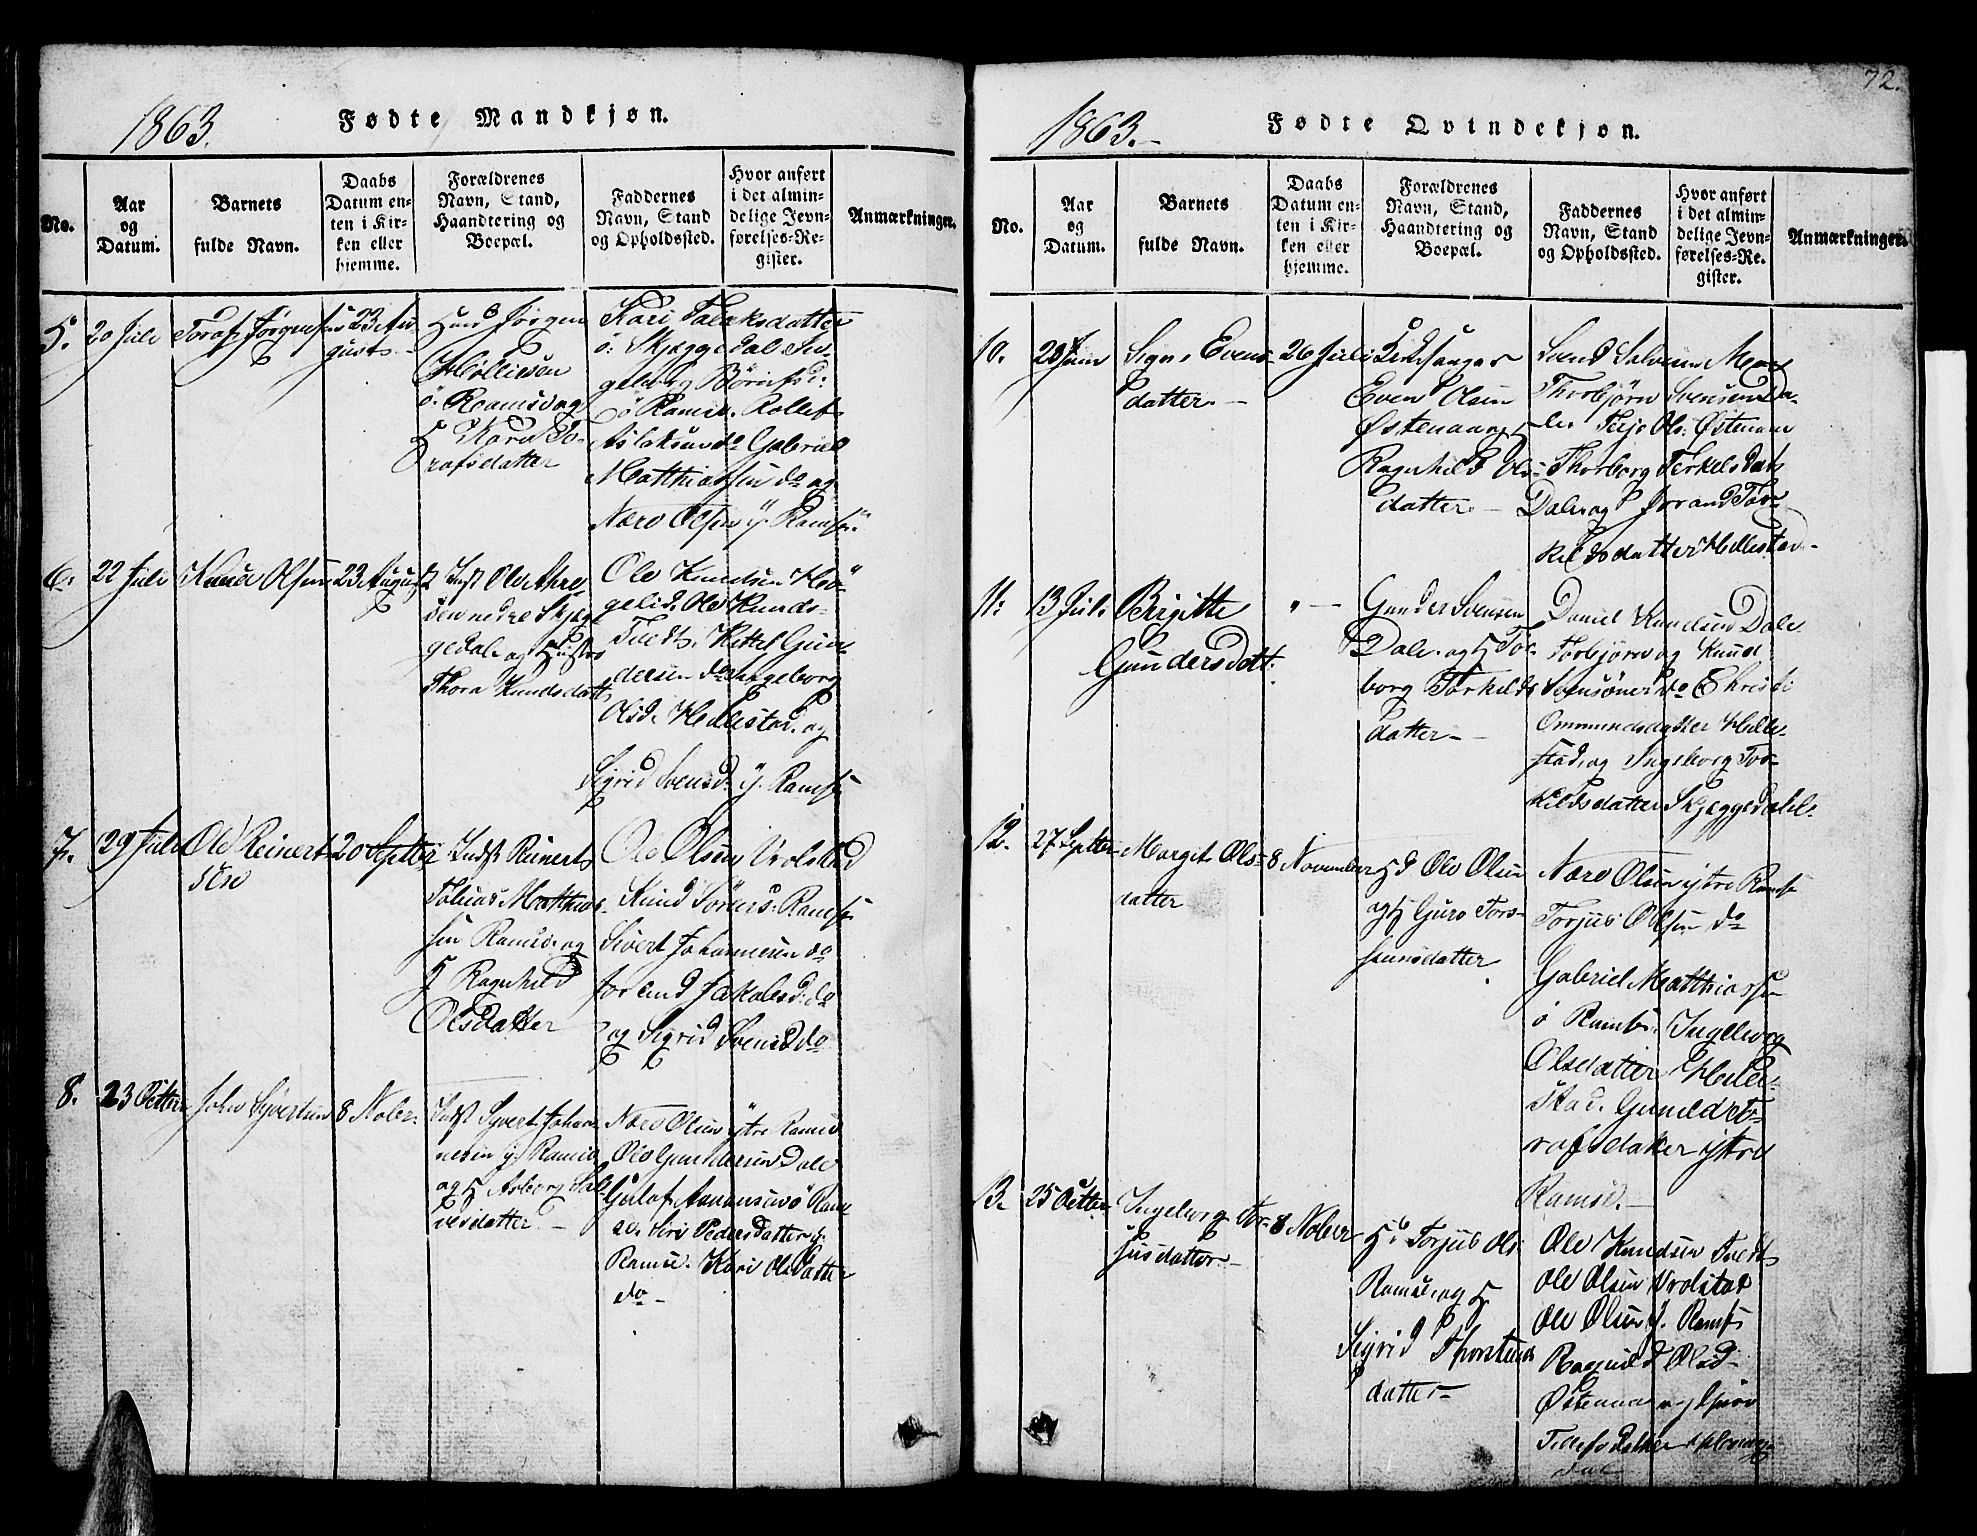 1863.
Fødte Mandkjøn.
No.
Aar
og
Datum.
Barnets
fulde Navn.
Daabs
Datum en-
ten i Kir-
ken eller
hjemme.
Forældrenes
Navn, Stand,
Haandtering og
Boepæl.
Faddernes
Navn, Stand
og Opholdssted.
Hvor anført
i det almin-
delige Jevn-
førelses-Re-
gister.
Anmærkninger.
5.
20 Juli
Toraf Jørgensen
23 Au-
gust
Jørgen
ö. Ramse og
H Kari To-
rafsdatter
Kari Aslaksdatter
ö. Skjæggedal In-
geborg
ö Ramse. Rollef
Aslaksen do Gabriel
Matthiassen do og
Nære Olsen y. Ramse
6.
22 Juli
Knud Olsen
23 August
Inst Ole
sen nedre Skjæg-
gedal og Hustro
Thora Knudsdatt
Ole Knudsen
Ole Knuds.
Tvedt. Kittel Gun-
dersen do Ingeborg
Olsd. Hillestad og
Sigrid Svensd. y. Ramse
7.
29 Juli
Ole Reinert-
sen
20 Septbr
Indst Reinert
Tobias Matthias-
sen Ramse og
H Ragnhild
Olsdatter
Ole Olsen Vrolstad
Knud Ramse
Sivert Johannesen do
Jorand Jakobsd. do
og Sigrid Svensd do
8.
23 Octbr
John Syvertsen
8 Nobr.
Indst Syvert Johan-
nesen y. Ramse
og H Asborg Sal-
vesdatter
Nære Olsen ytre Ramse
Ole Gundersen Dale
Gulaf Asmunsen ö Ram-
se. Siri Pedersdatter y.
Ramse. Kari Olsdatter
do
72.
1863.
Fødte Qvindekjøn.
No.
Aar
og
Datum.
Barnets
fulde Navn.
Daabs
Datum en-
ten i Kir-
ken eller
hjemme.
Forældrenes
Navn, Stand,
Haandtering og
Boepæl.
Faddernes
Navn, Stand
og Opholdssted.
Hvor anført
i det almin-
delige Jevn-
førelses-Re-
gister.
Anmærkninger.
10.
28 Juni
Signe Evens-
datter.
26 Juli
Kirkesanger
Even Olsen
Østenaa og H
Ragnhild Ols-
datter
Svend Salvesen Moe
Thorbjørn Svensen Da-
le. Terje Ols. Østenaa
Thorborg Terkelsdat
Dale og Jorand Tor-
kildsdatter Hillestad
11.
13 Juli
Birgitte
Gundersdatt.
Gunder Svensen
Dale og H Tor-
borg Torkilds
datter
Daniel Knudsen Dale.
Torbjørn og Knud
Svensøner do Christi
Ommundsdatter Hille-
stad og Ingeborg Tor-
kildsdatter Skjeggedal.
12.
27 Septbr
Margit Ols-
datter
8 November
Hd Ole Olsen
og H Guro Tors-
tensdatter
Nære Olsen ytre Ramse
Torjus Olsen do
Gabriel Matthiassen
ö Ramse. Ingeborg
Olsdatter Hille-
stad. Gunild To-
rafsdatter ytre
Ramse.
13.
25 Octbr
Ingeborg Tor-
jusdatter
8 Nober
Torjus Ols.
Ramse og H
Sigrid Thorstens
datter
Ole Knudsen Tvedt
Ole Olsen Vrolstad
Ole Olsen y. Ramse
Ragnild Olsd
Østenaa og